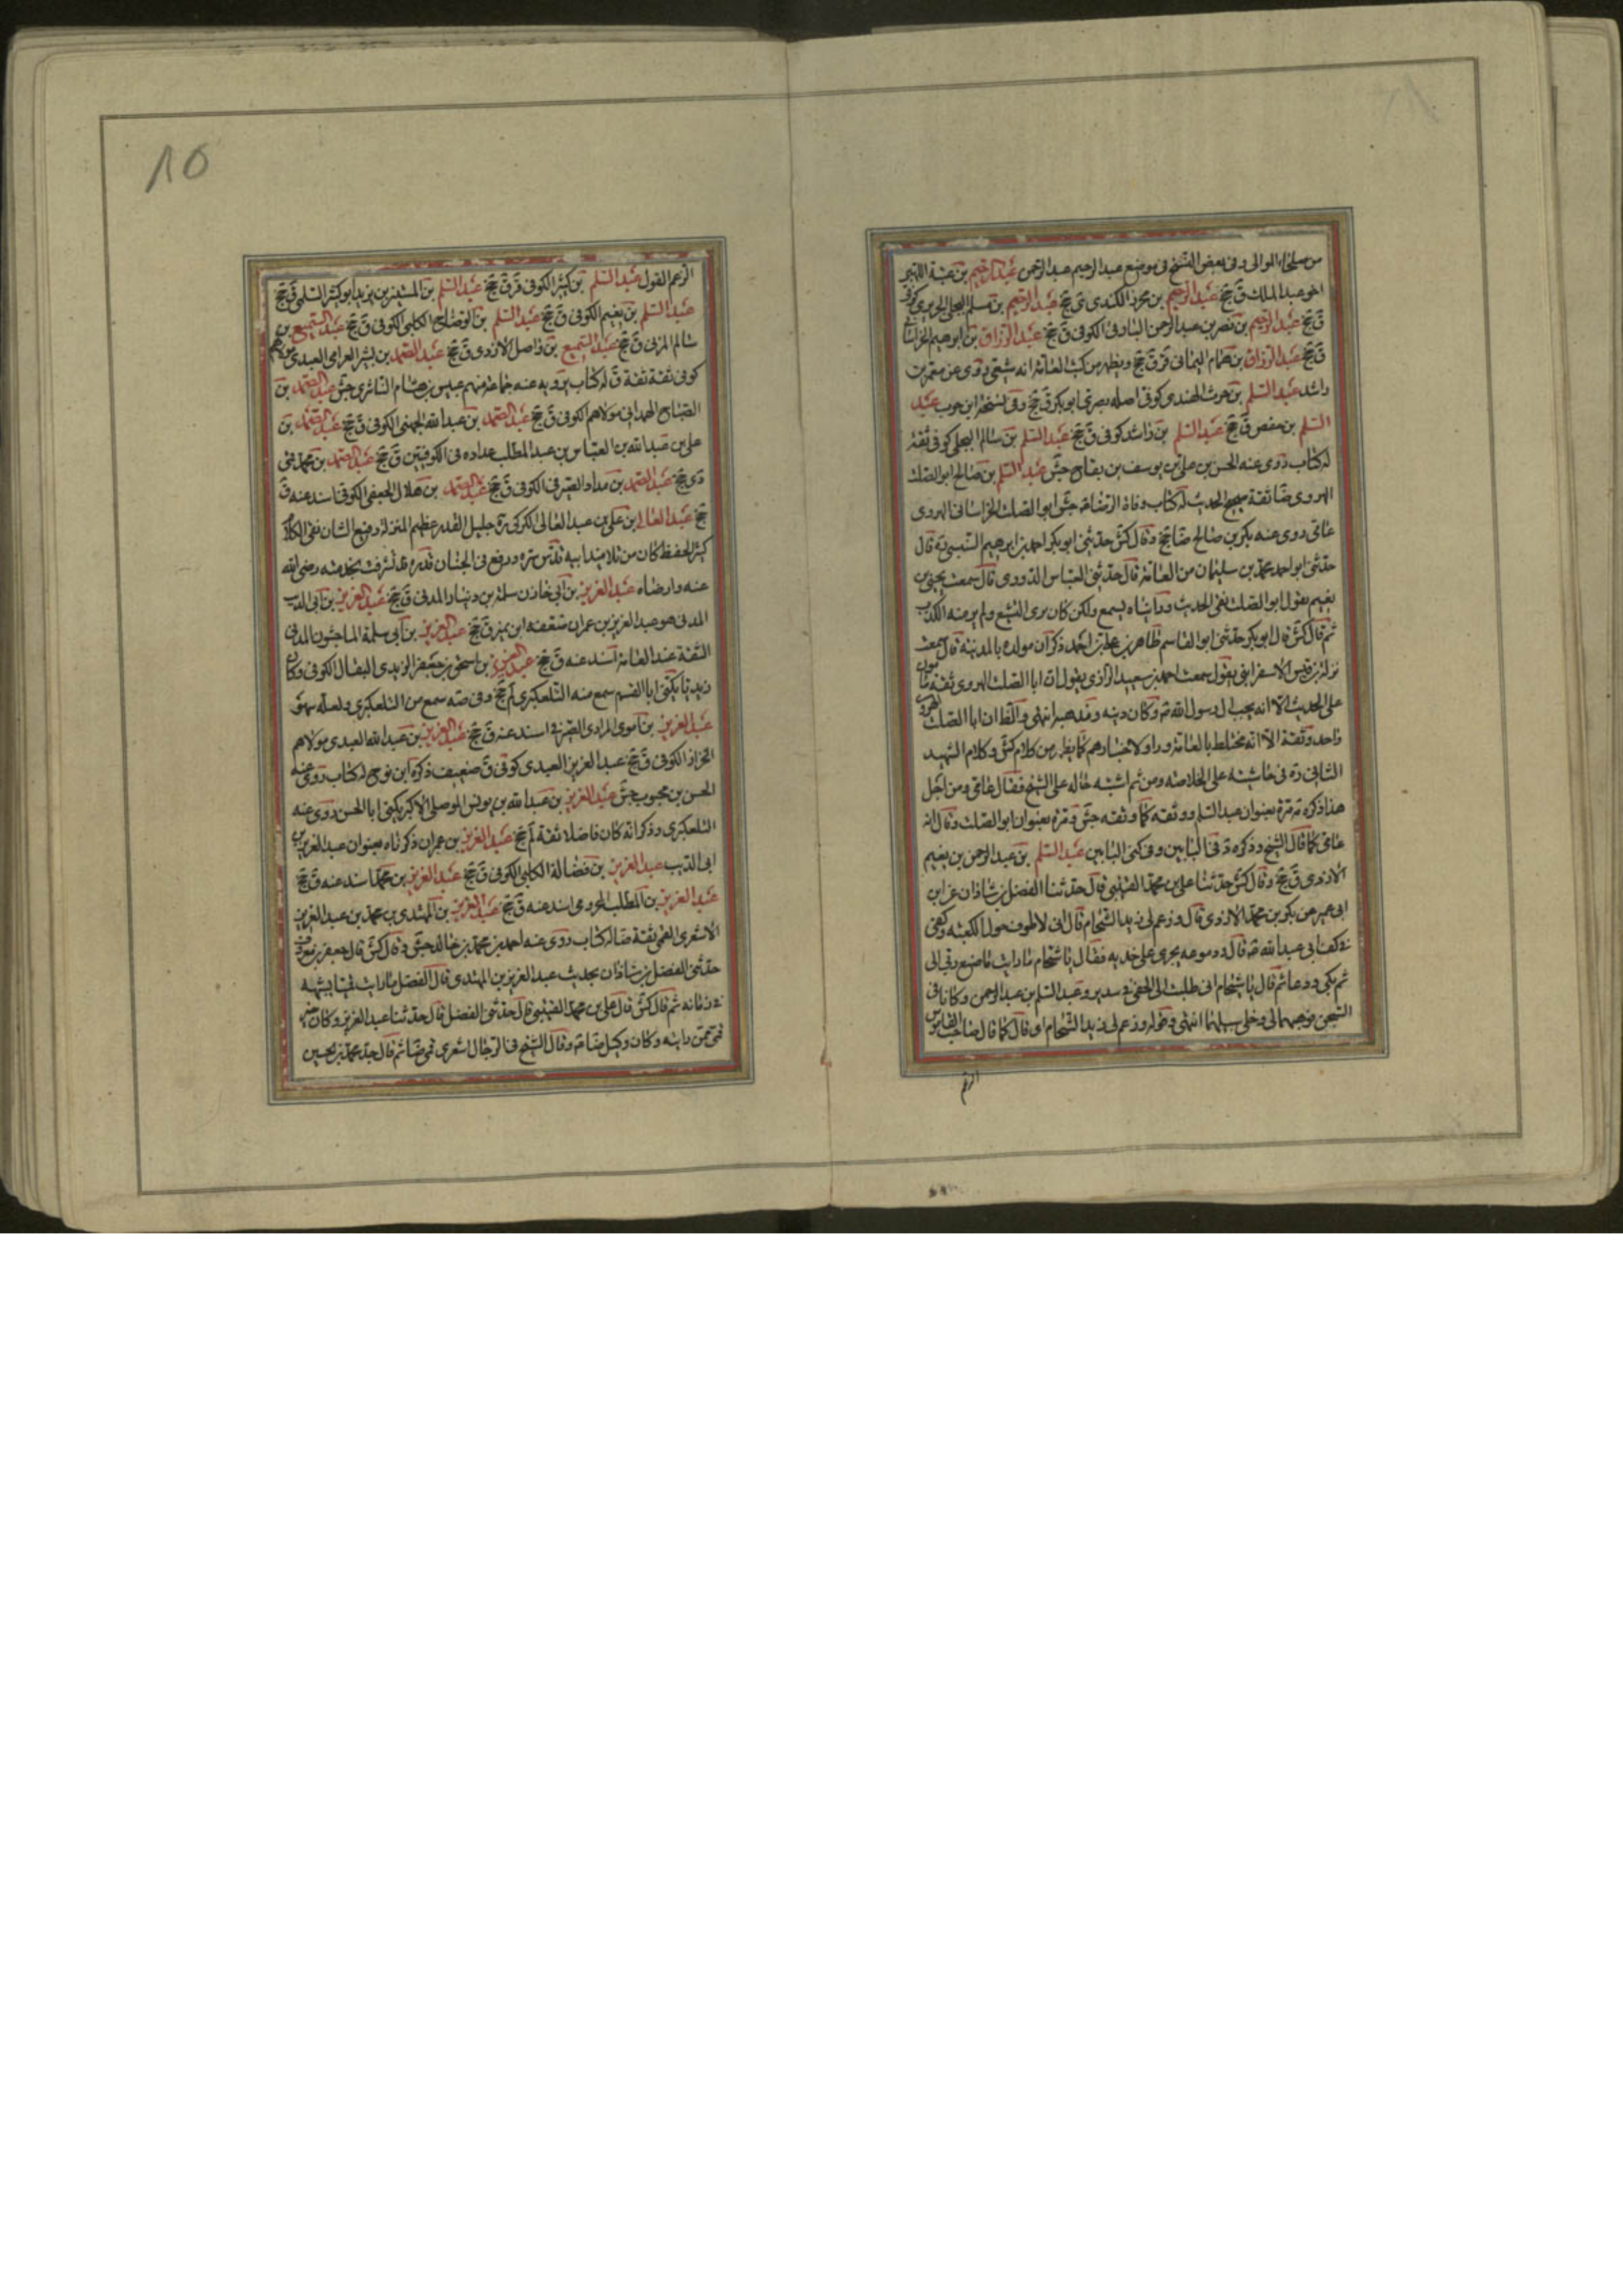 من صلحاء الموالى وفى بعض النسخ فى موضع عبد الرحيم عبد الرحمن عبد الرحيم بن عتبة اللهبى
اخو عبد الملك ق جخ عبد الرحيم بن محرز الكندى ق جخ عبد الرحيم بن مسلم البجلى الجريرى كوفى
ق جخ عبد الرحيم بن نصر بن عبد الرحمن البارقى الكوفى ق جخ عبد الرزاق بن ابرهيم الخراسانى
ق جخ عبد الرزاق بن همام اليمانى قر ق جخ ويظهر من كتب العامة انه شيعى روى عن معمر بن
راشد عبد السلم بن حرث الهندى كوفى اصله بصرى ابو بكر ق جخ وفى نسخة ابن حرب عبد
السلم بن حفص ق جخ عبد السلم بن راشد كوفى ق جخ عبد السلم بن سالم البجلى كوفى ثقة
له كتاب روى عنه الحسن بن على بن يوسف بن بقاح جش عبد السلم بن صالح ابو الصلت
الهروى ضا ثقة صحيح الحديث له كتاب وفاة الرضا ع جش ابو الصلت الخراسانى الهروى
عامى روى عنه بكر بن صالح ضا جخ وقال كش حدثنى ابو بكر احمد بن ابرهيم السنسنى ره قال
حدثنى ابو احمد محمد بن سليمان من العامة قال حدثنى العباس الدورى قال سمعت يحيى بن
نعيم يقول ابو الصلت نقى الحديث ورايناه يسمع ولكن كان يرى التشيع ولم ير منه الكذب
ثم قال كش قال ابو بكر حدثنى ابو القاسم طاهر بن على بن احمد ذكر ان مولده بالمدينة قال سمعت
بركة بن قيس الاسفراينى يقول سمعت احمد بن سعيد الرازى يقول ان ابا الصلت الهروى ثقة مامون
على الحديث الا انه يحب ال رسول الله ص وكان دينه ومذهبه انتهى والظ ان ابا الصلت الهروى
واحد وثقة الا انه مختلط بالعامة وراو لاخبارهم كما يظهر من كلام كش وكلام الشهيد
الثانى ره فى حاشيته على الخلاصة ومن ثم اشتبه حاله على الشيخ فقال عامى ومن اجل
هذا ذكره مه مرة بعنوان عبد السلم ووثقه كما وثقه جش ومرة بعنوان ابو الصلت وقال انه
عامى كما قال الشيخ وذكره د فى البابين وفى كنى البابين عبد السلم بن عبد الرحمن بن نعيم
الازدى ق جخ وقال كش حدثنا على بن محمد القتيبى قال حدثنا الفضل بن شاذان عن ابن
ابى عمير عن بكر بن محمد الازدى قال وزعم لى زيد الشحام قال انى لاطوف حول الكعبة وكفى
فى كف ابى عبد الله ع قال ودموعه يجرى على خديه فقال يا شحام ما رايت ما صنع ربى الى
ثم بكى ودعا ثم قال يا شحام انى طلبت الى الهى فى سدير وعبد السلم بن عبد الرحمن وكانا فى
السجن فوهبهما لى وخلى سبيلهما انتهى وقوله وزعم لى زيد الشحام اى قال كما قال صاحب القاموس
الزعم
١٥
الزعم القول عبد السلم بن كثير الكوفى قر ق جخ عبد السلم بن المستنير بن يزيد ابو كثير السلمى ق جخ
عبد السلم بن نعيم الكوفى ق جخ عبد السلم بن الوضاح الكلبى الكوفى ق جخ عبد السميع بن
سالم المزنى ق جخ عبد السميع بن واصل الازدى ق جخ عبد الصمد بن بشير العرامى العبدى مولاهم
كوفى ثقة ثقة ق له كتاب يرويه عنه جماعة منهم عبيس بن هشام الناشرى جش عبد الصمد بن
الصباح الهمدانى مولاهم الكوفى ق جخ عبد الصمد بن عبد الله الجهنى الكوفى ق جخ عبد الصمد بن
على بن عبد الله بن العباس بن عبد المطلب عداده فى الكوفيين ق جخ عبد الصمد بن محمد قمى
دى جخ عبد الصمد بن مداد الصيرفى الكوفى ق جخ عبد الصمد بن هلال الجعفى الكوفى اسند عنه ق
جخ عبد العالى بن على بن عبد العالى الكركى ره جليل القدر عظيم المنزلة رفيع الشان نقى الكلام
كثير الحفظ كان من تلاميذ ابيه قدس سره ورفع فى الجنان قدره قد تشرفت بخدمته رضى الله
عنه وارضاه عبد العزيز بن ابى حازن سلمة بن دينار المدنى ق جخ عبد العزيز بن ابى الذيب
المدنى هو عبد العزيز بن عمران ضعفه ابن نمير ق جخ عبد العزيز بن ابى سلمة الماجشون المدنى
الثقة عند العامة اسند عنه ق جخ عبد العزيز بن اسحق بن جعفر الزيدى البقال الكوفى وكان
زيديا يكنى ابا القسم سمع منه التلعكبرى لم جخ وفى صه سمع من التلعكبرى ولعله سهو
عبد العزيز بن اموى المرادى الصيرفى اسند عنه ق جخ عبد العزيز بن عبد الله العبدى مولاهم
الخزاز الكوفى ق جخ عبد العزيز العبدى كوفى ق ضعيف ذكره ابن نوح له كتاب روى عنه
الحسن بن محبوب جش عبد العزيز بن عبد الله بن يونس الموصلى الاكبر يكنى ابا الحسن روى عنه
التلعكبرى وذكر انه كان فاضلا ثقة لم جخ عبد العزيز بن عمران ذكرناه بعنوان عبد العزيز بن
ابى الذيب عبد العزيز بن فضالة الكلبى الكوفى ق جخ عبد العزيز بن محمد اسند عنه ق جخ
عبد العزيز بن المطلب المخزومى اسند عنه ق جخ عبد العزيز بن المهتدى بن محمد بن عبد العزيز
الاشعرى القمى ثقة ضا له كتاب روى عنه احمد بن محمد بن خالد جش وقال كش قال جعفر بن معروف
حدثنى الفضل بن شاذان بحديث عبد العزيز بن المهتدى قال الفضل ما رايت قميا يشبهه
فى زمانه ثم قال كش قال على بن محمد القتيبى قال حدثنى الفضل قال حدثنا عبد العزيز وكان خير
قمى ممن رايته وكان وكيل ضا ع وقال الشيخ فى الرجال اشعرى قمى ضا ثم قال جد محمد بن الحسين